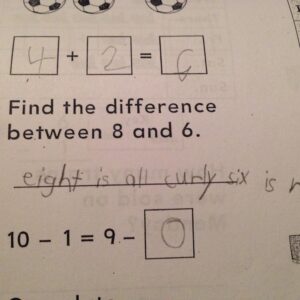 4 + 2 = 6
Find the difference
between 8 and 6.
eight is all curly six is
10 - 1 = 9 - 0